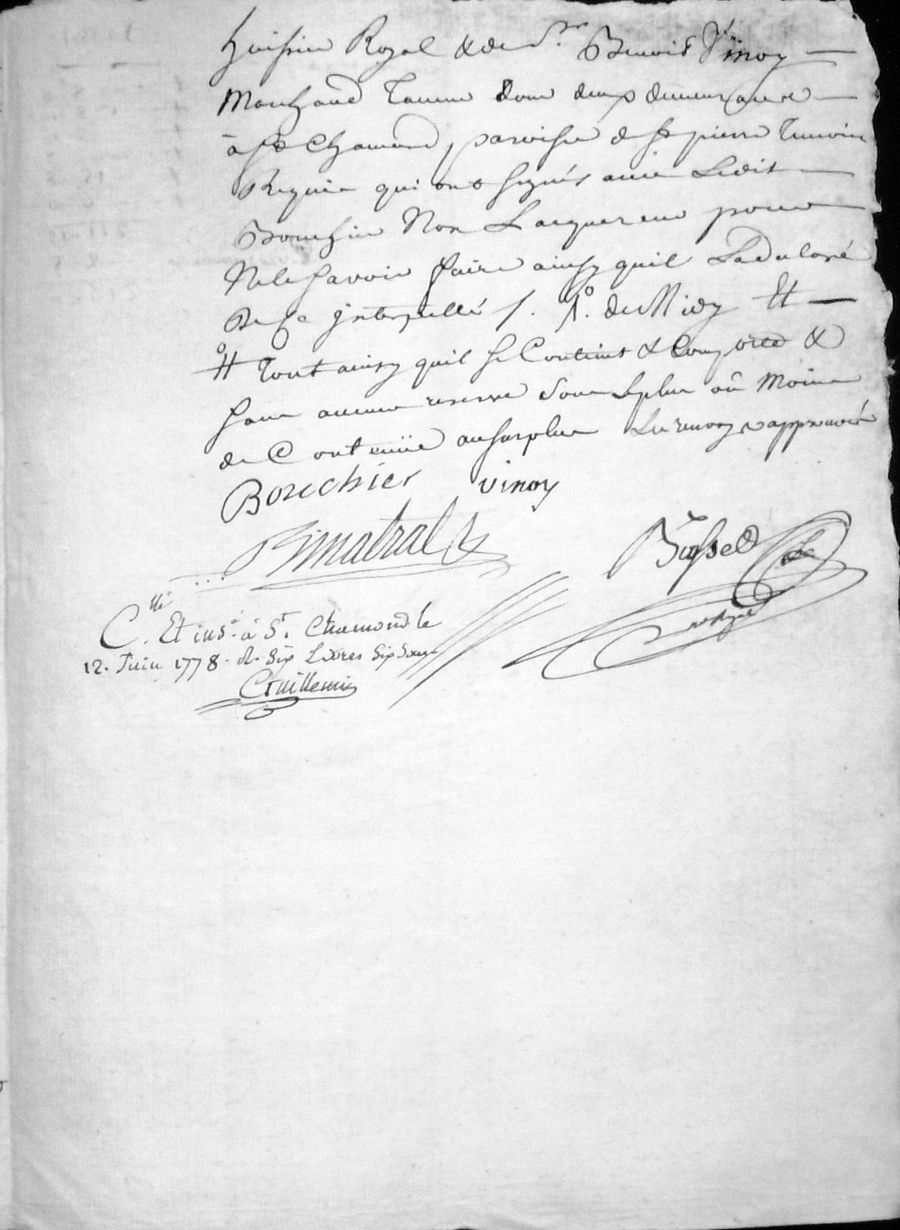 huissier Royal & de Sr. Benoit Vinoy
Marchand Tanneur tous deux demeurants
à St Chamond, parroisse de St pierre temoins
Requis qui ont signés avec Ledit
Bouchier Non Lacquereur pour
Ne le savoir faire ainsy quil La declaré
de ce jnterpellé /. 1°. de Midy #
# Tout ainsy quil se Contient & Comporte &
sans aucune reserve sous le plus ou Moins
de Contenüe au surplus Le renvoy approuvé
Bouchier vinoy
Bmatral
Bussed
C.lé Et ins.é à St. Chamond le
12. Juin 1778. de Six Livres Six sous
Guillemin